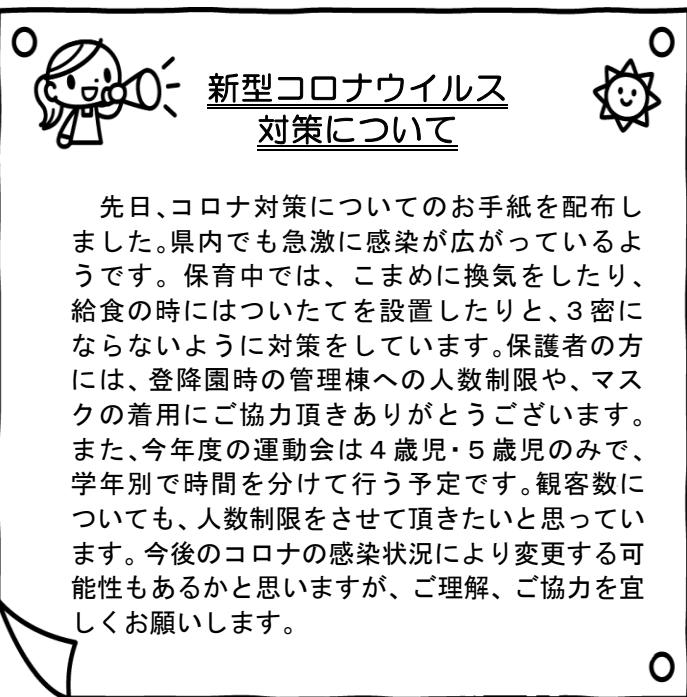 新型コロナウイルス
対策について
先日、コロナ対策についてのお手紙を配布し
ました。県内でも急激に感染が広がっているよ
うです。保育中では、こまめに換気をしたり、
給食の時にはついたてを設置したりと、3密に
ならないように対策をしています。保護者の方
には、登降園時の管理棟への人数制限や、マス
クの着用にご協力頂きありがとうございます。
また、今年度の運動会は4歳児・5歳児のみで、
学年別で時間を分けて行う予定です。観客数に
ついても、人数制限をさせて頂きたいと思ってい
ます。今後のコロナの感染状況により変更する可
能性もあるかと思いますが、ご理解、ご協力を宜
しくお願いします。